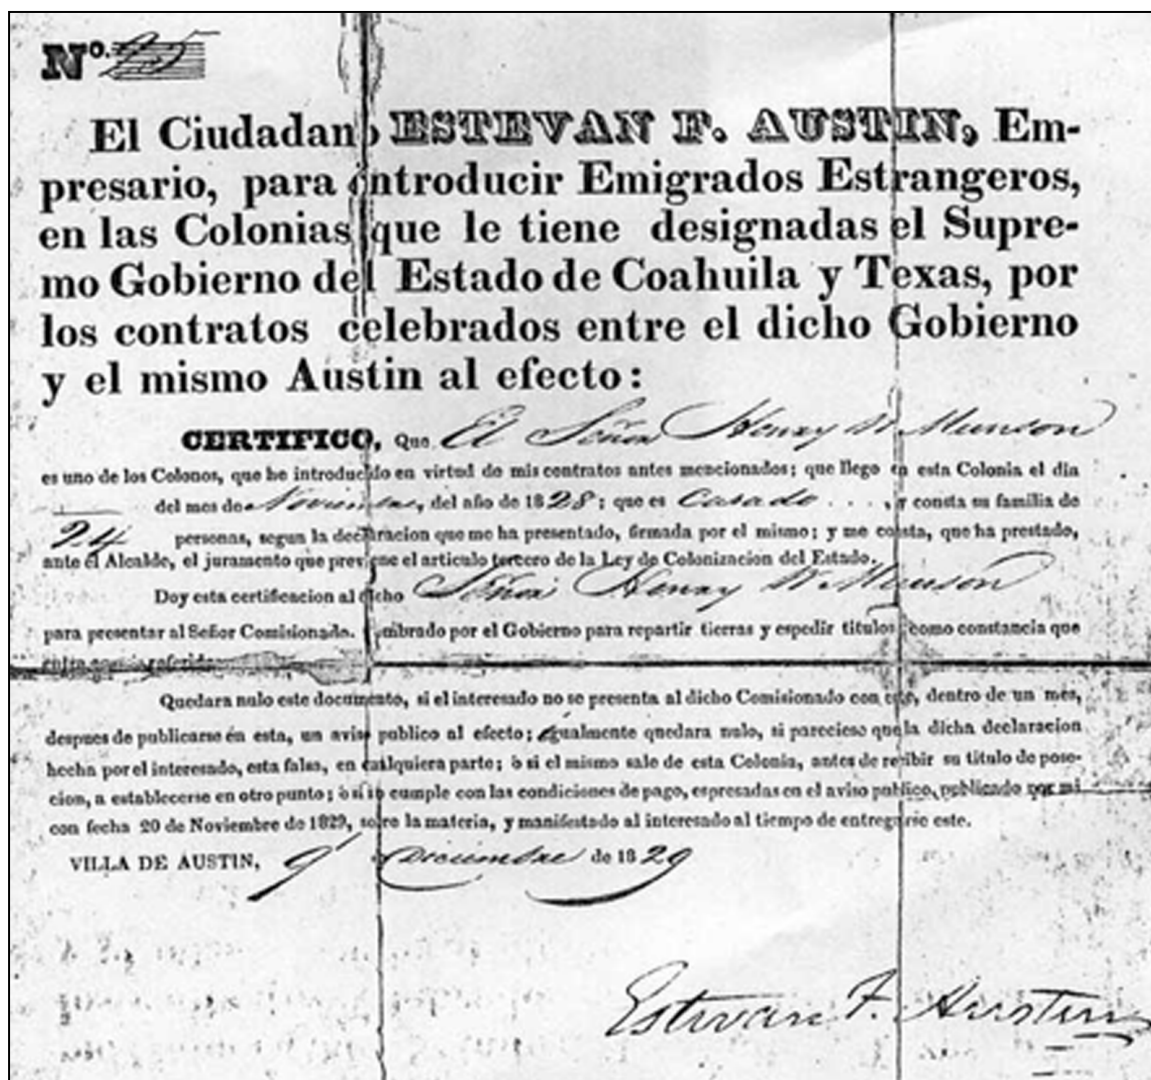 No. 25
El Ciudadano ESTEVAN F. AUSTIN, Em-
presario, para introducir Emigrados Estrangeros,
en las Colonias que le tiene designadas el Supre-
mo Gobierno del Estado de Coahuila y Texas, por
los contratos celebrados entre el dicho Gobierno
y el mismo Austin al efecto:
CERTIFICO, Que El Señor Henry W Munson
es uno de los Colonos, que he introducido en virtud de mis contratos antes mencionados; que llego en esta Colonia el dia
del mes de Noviembre, del año de 1828; que es Casado . . . , y consta su familia de
24 personas, segun la declaracion que me ha presentado, firmada por el mismo; y me consta, que ha prestado,
ante el Alcalde, el juramento que previene el articulo tercero de la Ley de Colonizacion del Estado.
Doy esta certificacion al dicho Señor Henry W Munson
para presentar al Señor Comisionado. nombrado por el Gobierno para repartir tierras y espedir titulos, como constancia que
referida
Quedara nulo este documento, si el interesado no se presenta al dicho Comisionado con este, dentro de un mes,
despues de publicarse en esta, un aviso publico al efecto; égualmente quedara nulo, si pareciese que la dicha declaracion
hecha por el interesado, esta falsa, en cualquiera parte; ò si el mismo sale de esta Colonia, antes de recibir su titulo de pose-
cion, a establecerse en otro punto; ò si no cumple con las condiciones de pago, espresadas en el aviso publico, publicado por mi
con fecha 20 de Noviembre de 1829, sobre la materia, y manifestado al interesado al tiempo de entregarle este.
VILLA DE AUSTIN, 9 Diciembre de 1829
Estevan F. Austin